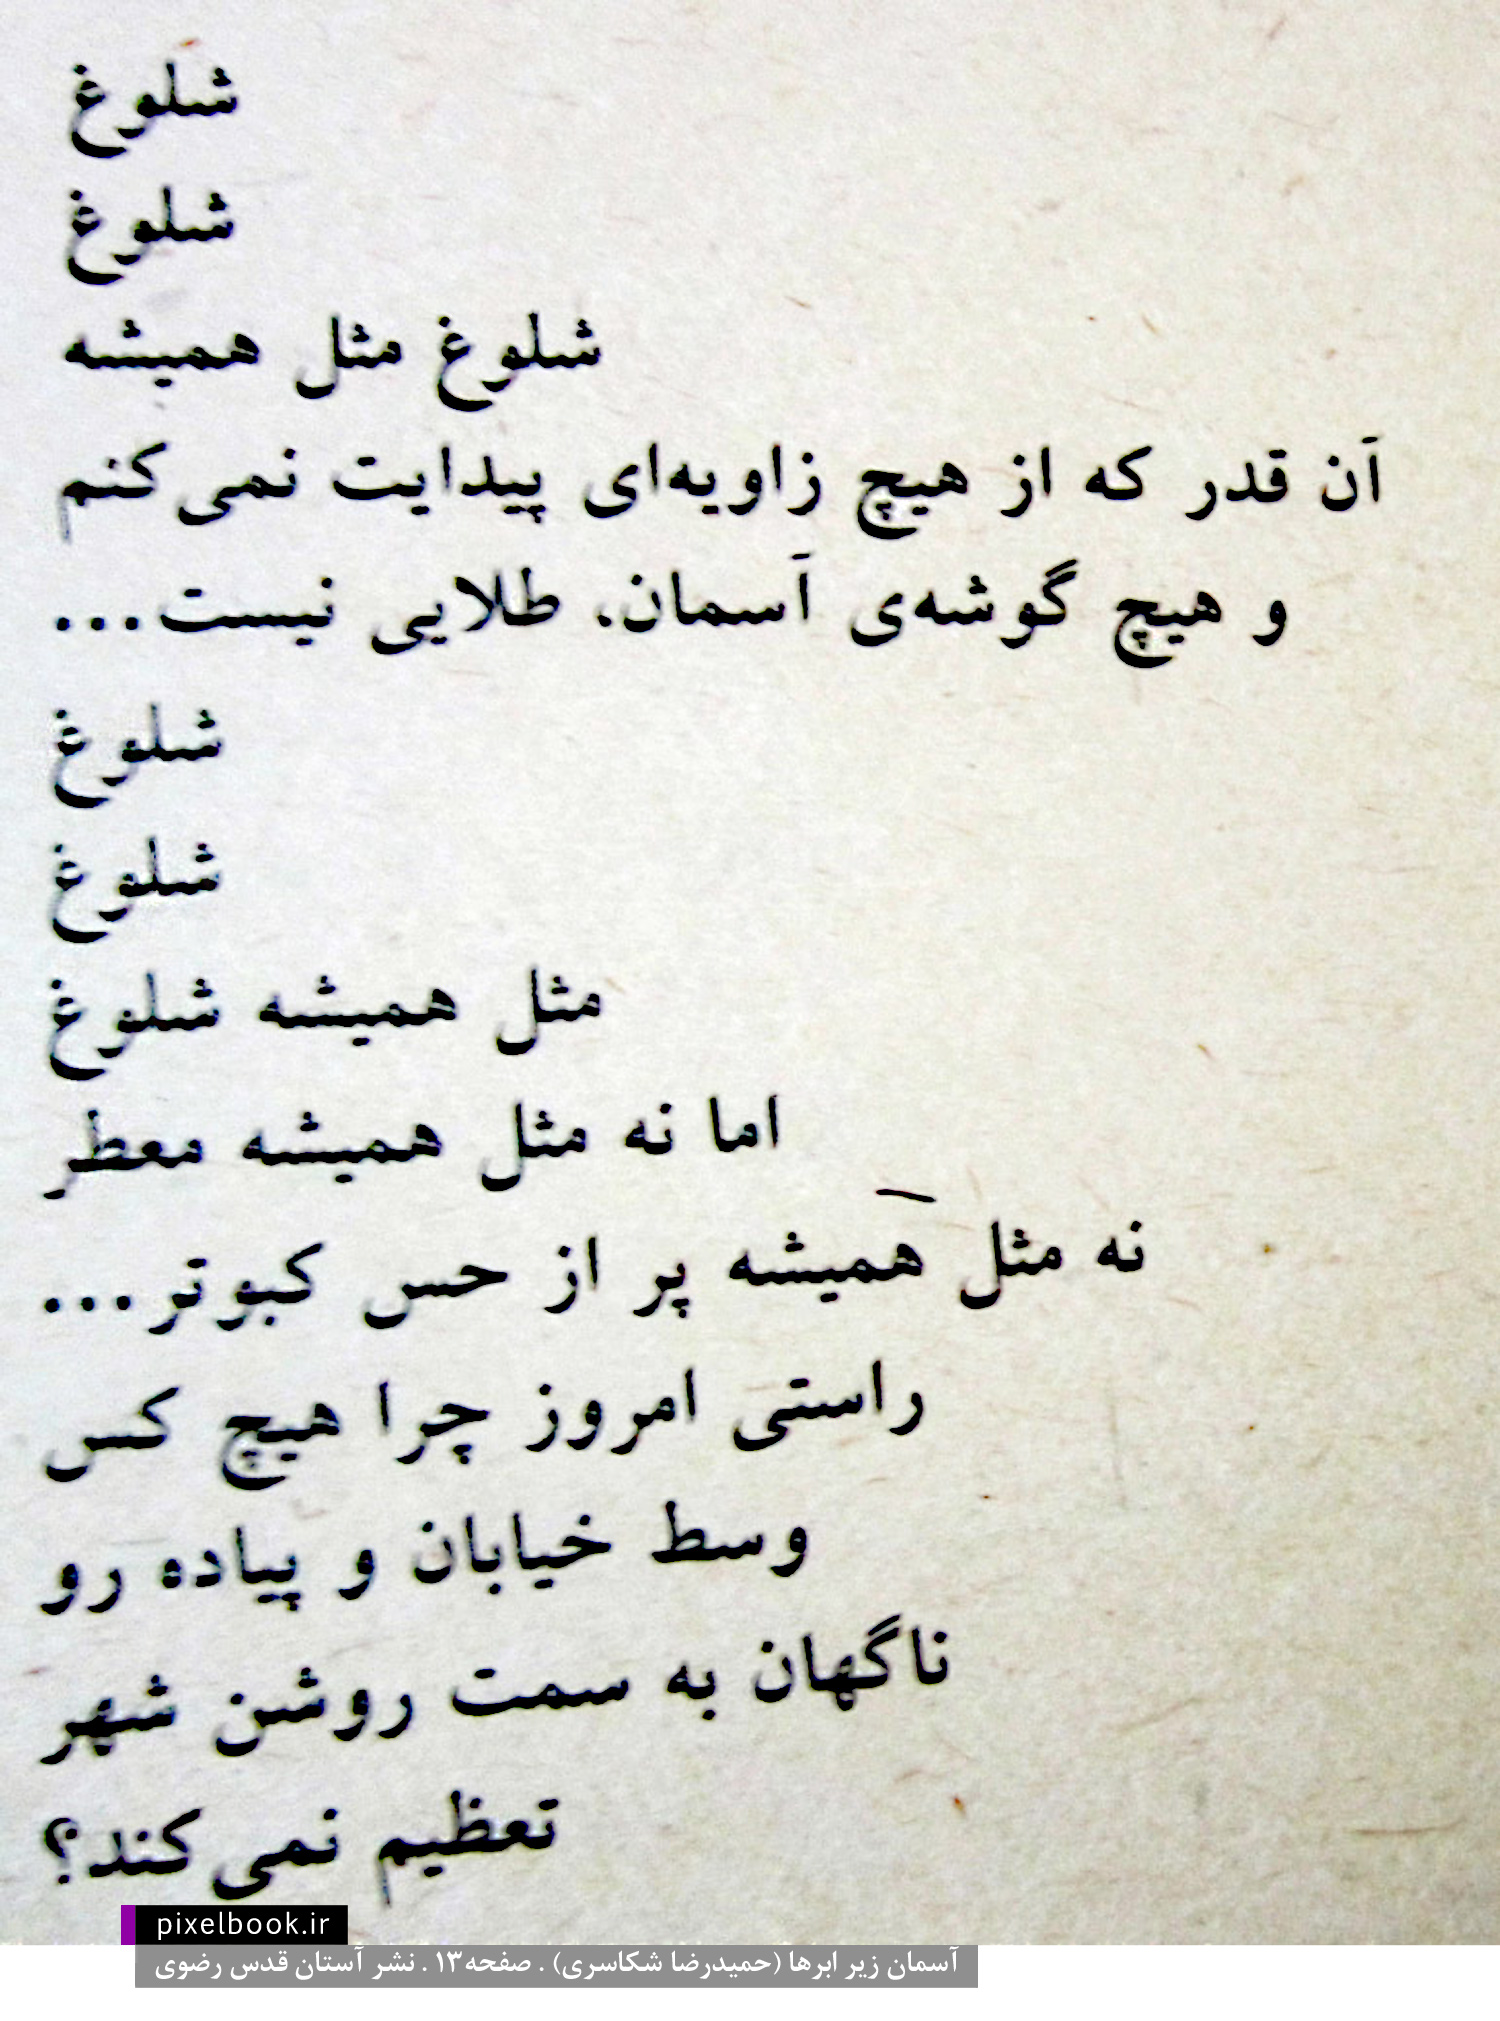 شلوغ
شلوغ
شلوغ مثل همیشه
آن قدر که از هیچ زاویه‌ای پیدایت نمی‌کنم
و هیچ گوشه‌ی آسمان، طلایی نیست...
شلوغ
شلوغ
مثل همیشه شلوغ
اما نه مثل همیشه معطر
نه مثل همیشه پر از حس کبوتر...
راستی امروز چرا هیچ کس
وسط خیابان و پیاده رو
ناگهان به سمت روشن شهر
تعظیم نمی‌کند؟
pixelbook.ir
آسمان زیر ابرها (حمیدرضا شکاسری) . صفحه۱۳ . نشر آستان قدس رضوی